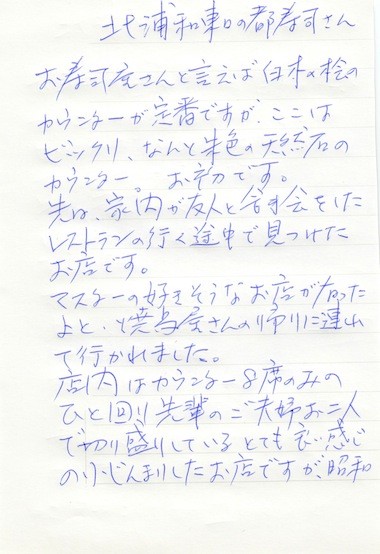 北浦和東口の都寿司さん
お寿司屋さんと言えば白木や桧の
カウンターが定番ですが、ここは
ビックリ、なんと朱色の天然石の
カウンター。お初です。
先は、家内が友人と会食をした
レストランの行く途中で見つけた
お店です。
マスターの好きそうなお店があった
よと、焼鳥屋さんの帰りに連れ
て行かれました。
店内はカウンター8席のみの
ひと回り先輩のご夫婦お二人
で切り盛りしているとても良い感じ
の小じんまりしたお店ですが、昭和